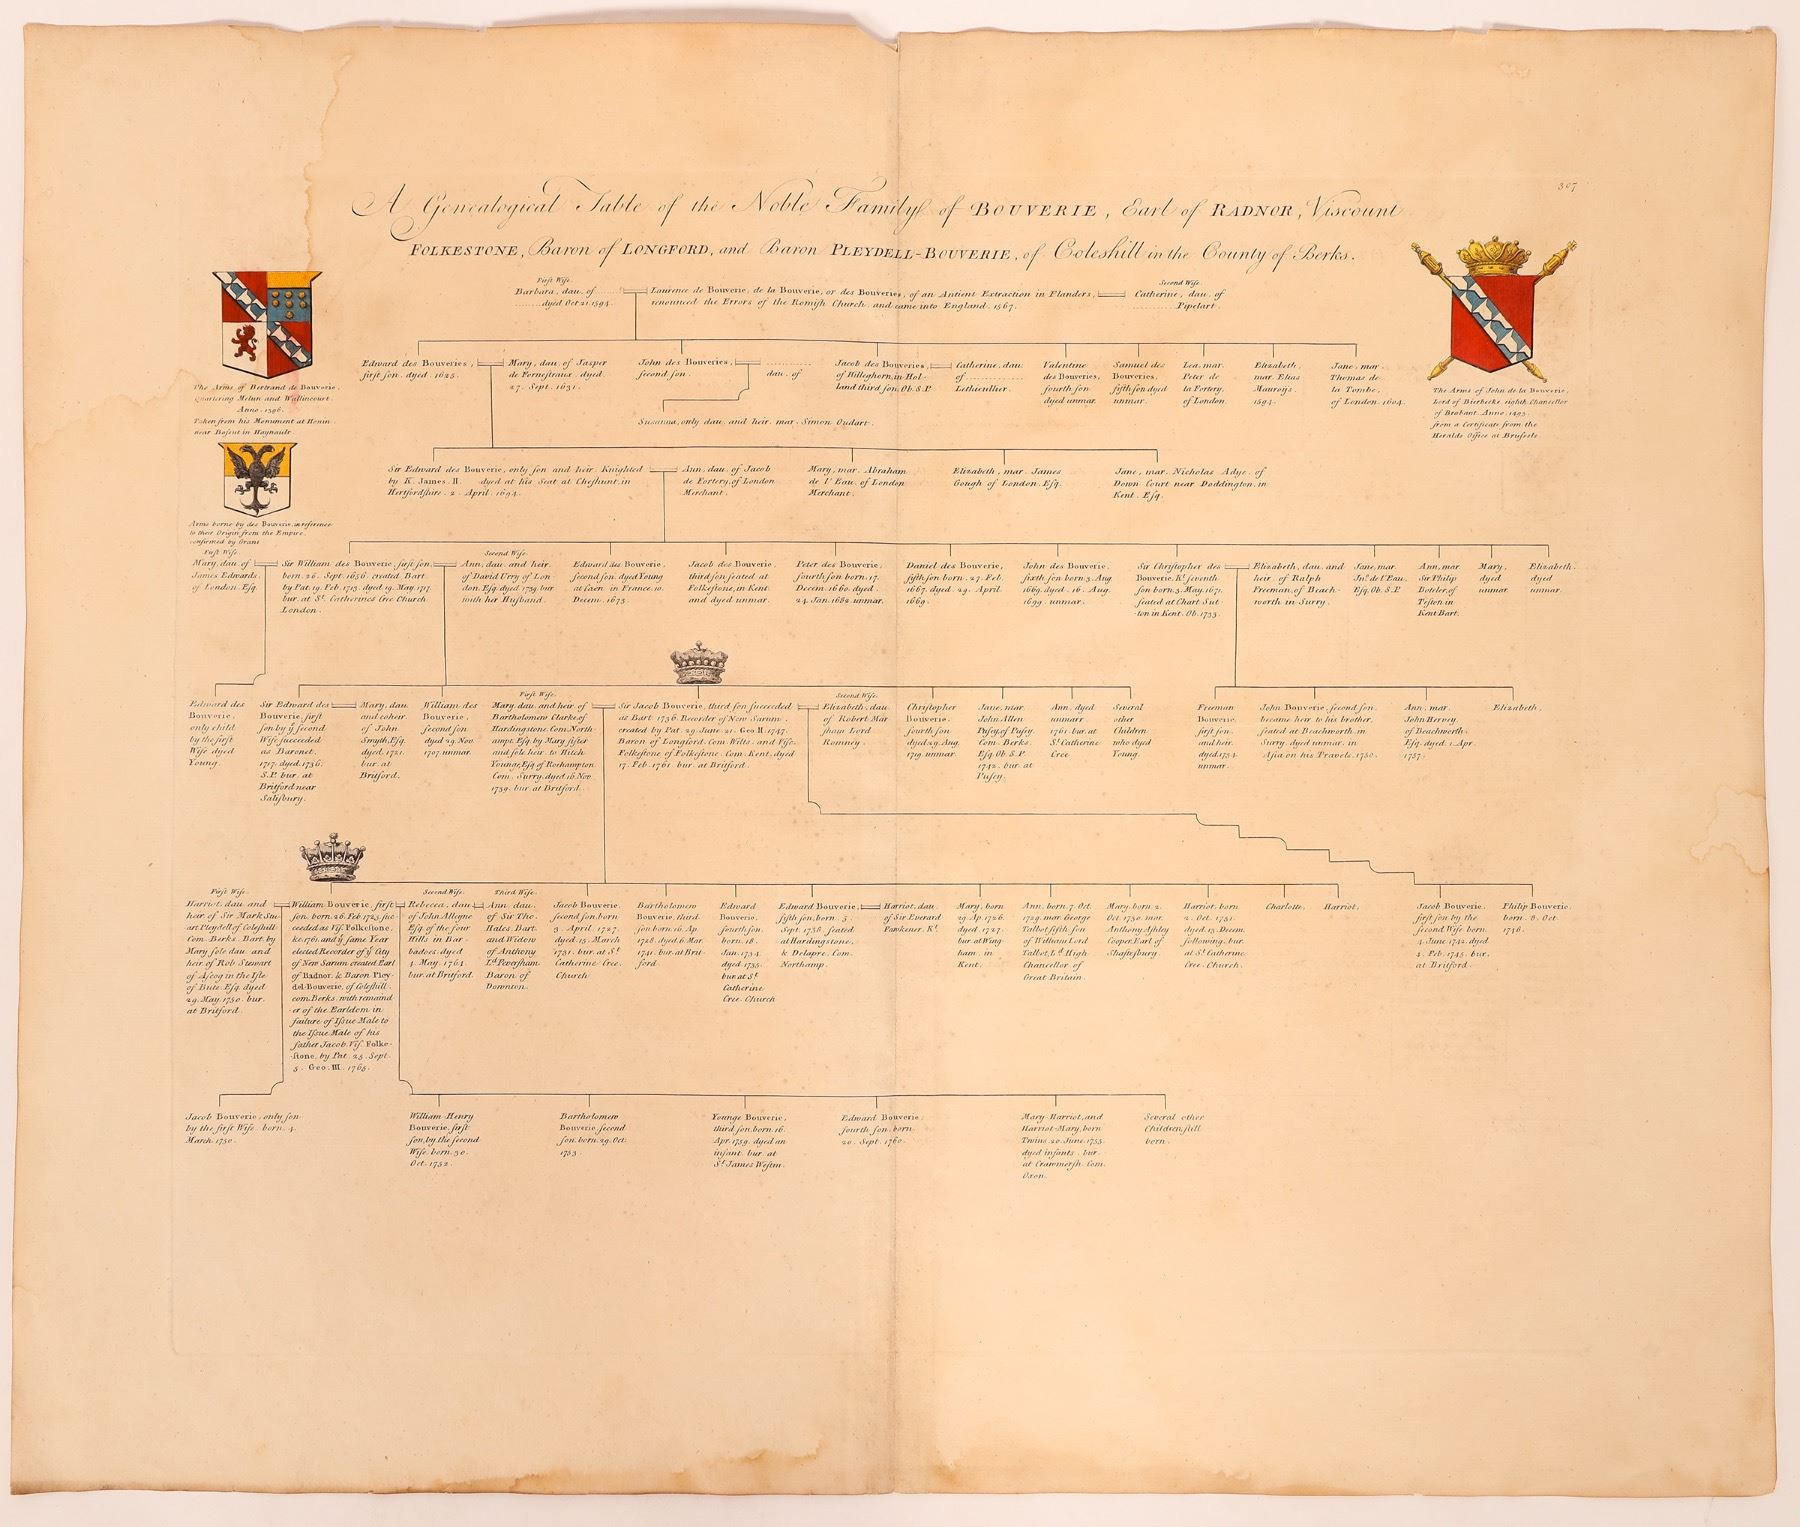 307
A Genealogical Table of the Noble Family of BOUVERIE, Earl of RADNOR, Viscount
FOLKESTONE, Baron of LONGFORD, and Baron PLEYDELL-BOUVERIE, of Coleshill in the County of Berks.
The Arms of Bertrand de Bouverie,
quartering Melun and Wallincourt.
Anno. 1396.
Taken from his Monument at Honin
near Bossut in Haynault
Arms borne by des Bouverie, in reference
to their Origin from the Empire,
confirmed by Grant
The Arms of John de la Bouverie,
Lord of Bierbecke eighth Chancellor
of Brabant. Anno. 1493.
from a Certificate from the
Heralds Office at Brussels.
First Wife.
Barbara, dau. of ........
........ dyed Oct 21. 1594.
Laurence de Bouverie, de la Bouverie, or des Bouveries, of an Antient Extraction in Flanders,
renounced the Errors of the Romish Church, and came into England. 1567.
Second Wife.
Catherine, dau. of
........ Pipelart.
Edward des Bouveries,
first son. dyed. 1625.
Mary, dau. of Jasper
de Fornestraux. dyed.
27. Sept. 1631.
John des Bouveries,
second son.
dau. of
Jacob des Bouveries,
of Willeghorn, in Hol-
land third son, Ob. S.P.
Catherine, dau.
of ........
Lethieullier.
Valentine
des Bouveries,
fourth son
dyed unmar.
Samuel des
Bouveries,
fifth son dyed
unmar.
Lea, mar.
Peter de
la Fortery,
of London.
Elizabeth,
mar. Elias
Mauroijs.
1594.
Jane, mar.
Thomas de
la Tombe,
of London. 1604.
Susanna, only dau. and heir. mar. Simon Oudart.
Sir Edward des Bouverie, only son and heir. Knighted
by K. James. II. dyed at his Seat at Cheshunt, in
Hertfordshire. 2. April. 1694.
Ann, dau. of Jacob
de Fortery, of London
Merchant.
Mary, mar. Abraham
de l'Eau, of London
Merchant.
Elizabeth, mar. James
Gough of London. Esq.
Jane, mar. Nicholas Adye. of
Down Court near Doddington, in
Kent. Esq.
First Wife.
Mary, dau. of
James Edwards,
of London. Esq.
Sir William des Bouverie, first son,
born. 26. Sept. 1656. created Bart.
by Pat. 19. Feb. 1713. dyed. 19. May. 1717.
bur. at St. Catherines Cree Church
London.
Second Wife.
Ann, dau. and heir.
of David Urry of Lon-
don. Esq. dyed. 1739. bur.
with her Husband.
Edward des Bouverie,
second son. dyed Young
at Caen in France. 10.
Decem. 1673.
Jacob des Bouverie,
third son seated at
Folkestone, in Kent.
and dyed unmar.
Peter des Bouverie,
fourth son born. 17.
Decem. 1660. dyed.
24. Jan. 1682. unmar.
Daniel des Bouverie,
fifth son born. 27. Feb.
1667. dyed. 29. April.
1669.
John des Bouverie,
sixth son born. 3. Aug.
1669. dyed. 16. Aug.
1699. unmar.
Sir Christopher des
Bouverie. Kt. seventh
son born. 3. May. 1671.
seated at Chart Sut-
ton in Kent. Ob. 1733.
Elizabeth, dau. and
heir of Ralph
Freeman, of Beach-
worth in Surry.
Jane, mar.
Jno. de l'Eau.
Esq. Ob. S.P.
Ann, mar.
Sir Philip
Boteler, of
Teston in
Kent. Bart.
Mary,
dyed
unmar.
Elizabeth.
dyed
unmar.
Edward des
Bouverie,
only child
by the first
Wife dyed
Young.
Sir Edward des
Bouverie, first
son by ye second
Wife succeeded
as Baronet.
1717. dyed. 1736.
S.P. bur. at
Britford near
Salisbury.
Mary, dau.
and coheir
of John
Smyth, Esq.
dyed. 1721.
bur. at
Britford.
William des
Bouverie,
second son
dyed. 29. Nov.
1707. unmar.
First Wife.
Mary, dau. and heir of
Bartholomew Clarke of
Hardingstone. Com. North-
ampt. Esq. by Mary sister
and sole heir to Hitch
Younge, Esq. of Roehampton
Com. Surry. dyed. 16. Nov.
1739. bur. at Britford.
Sir Jacob Bouverie, third son succeeded
as Bart. 1736. Recorder of New Sarum.
created by Pat. 29. June. 21. Geo. II. 1747.
Baron of Longford. Com. Wilts. and Visc.
Folkestone of Folkestone. Com. Kent. dyed
17. Feb. 1761. bur. at Britford.
Second Wife.
Elizabeth, dau.
of Robert Mar
sham Lord
Romney.
Christopher
Bouverie.
fourth son
dyed. 29. Aug.
1719. unmar.
Jane, mar.
John Allen
Pusey, of Pusey.
Com. Berks.
Esq. Ob. S.P.
1742. bur. at
Pusey.
Ann, dyed
unmarr.
1761. bur. at
St. Catherine
Cree
Several
other
Children
who dyed
Young.
Freeman
Bouverie,
first son,
and heir.
dyed. 1734.
unmar.
John Bouverie, second son.
became heir to his brother,
seated at Beachworth, in
Surry. dyed unmar. in
Asia on his Travels. 1750.
Ann, mar.
John Hervey
of Beachworth.
Esq. dyed. 1. Apr.
1757.
Elizabeth.
First Wife.
Harriot, dau. and
heir. of Sir Mark Stu-
art Pleydell of Coleshill.
Com. Berks. Bart. by
Mary sole dau. and
heir of Rob. Stewart
of Ascog in the Isle
of Bute. Esq. dyed
29. May. 1750. bur.
at Britford.
William Bouverie, first
son. born. 26. Feb. 1725. suc-
ceeded as Vis. Folkestone,
1761. and ye same Year
elected Recorder of ye City
of New Sarum created Earl
of Radnor. & Baron Pley-
del-Bouverie, of Coleshill.
com. Berks. with remaind
er of the Earldom in
failure of Issue Male to
the Issue Male of his
father Jacob. Vis. Folke-
stone, by Pat. 25. Sept.
5. Geo. III. 1765.
Second Wife.
Rebecca, dau.
of John Alleyne
Esq. of the four
Hills in Bar-
badoes dyed
4. May. 1764.
bur. at Britford.
Third Wife.
Ann, dau.
of Sir Tho.
Hales. Bart.
and Widow
of Anthony
Ld. Feversham.
Baron of
Downton.
Jacob Bouverie,
second son, born
3. April. 1727.
dyed. 15. March
1731. bur. at St.
Catherine Cree.
Church
Bartholomew
Bouverie, third
son, born. 16. Ap.
1728. dyed. 6. Mar.
1741. bur. at Brit-
ford.
Edward
Bouverie,
fourth son,
born. 18.
Jan. 1734.
dyed. 1735.
bur. at St.
Catherine
Cree. Church
Edward Bouverie,
fifth son, born. 5.
Sept. 1738. seated
at Hardingstone,
& Delapre. Com.
Northamp.
Harriot, dau.
of Sir Everard
Fawkener. Kt.
Mary, born
29. Ap. 1726.
dyed. 1727.
bur. at Wing-
ham. in
Kent.
Ann, born. 7. Oct.
1729. mar. George
Talbot, fifth son
of William Lord
Talbot, Ld. High
Chancellor of
Great Britain.
Mary, born. 2.
Oct. 1730. mar.
Anthony Ashley
Cooper, Earl of
Shaftesbury.
Harriot, born
2. Oct. 1731.
dyed. 15. Decem.
following. bur.
at St. Catherine
Cree. Church.
Charlotte.
Harriot.
Jacob Bouverie,
first son by the
second Wife. born.
4. June. 1742. dyed
4. Feb. 1745. bur.
at Britford.
Philip Bouverie.
born. 8. Oct.
1746.
Jacob Bouverie, only son
by the first Wife. born. 4.
March. 1750.
William-Henry
Bouverie, first
son, by the second
Wife. born. 30.
Oct. 1752.
Bartholomew
Bouverie, second
son. born. 29. Oct.
1753.
Younge Bouverie,
third son, born. 16.
Apr. 1759. dyed an
infant. bur. at
St. James Westm.
Edward Bouverie,
fourth son. born
20. Sept. 1760.
Mary-Harriot, and
Harriot-Mary, born
Twins. 20. June. 1755.
dyed infants. bur.
at Crawmersh. Com.
Oxon.
Several other
Children, still
born.